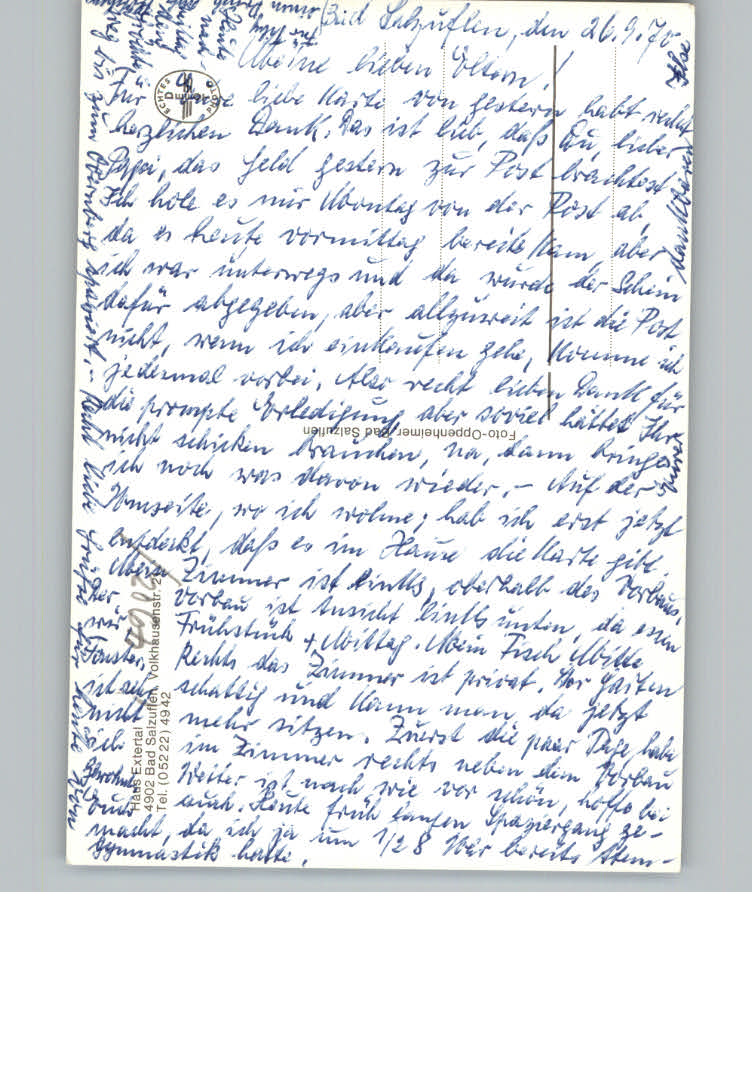 Bad Salzuflen, den 26.9.70
Meine lieben Eltern!
Für Eure liebe Karte von gestern habt recht
herzlichen Dank. Das ist lieb, daß Du, lieber
Papi, das Geld gestern zur Post brachtest.
Ich hole es mir Montag von der Post ab,
da es heute vormittag bereits kam, aber
ich war unterwegs und da wurde der Schein
dafür abgegeben, aber allzuweit ist die Post
nicht, wenn ich einkaufen gehe, komme ich
jedesmal vorbei. Also recht lieben Dank für
die prompte Erledigung, aber soviel hättet Ihr
nicht schicken brauchen, na, dann bringe
ich noch was davon wieder. - Auf der
Innenseite, wo ich wohne, hab ich erst jetzt
entdeckt, daß es im Hause die Karte gibt.
Mein Zimmer ist links, oberhalb des Vorbaus.
Vorbau ist Ansicht links unten, da essen
wir Frühstück + Mittag. Mein Tisch Mitte
Fenster. Rechts das Zimmer ist privat. Der Garten
ist sehr schattig und kann man da jetzt
nicht mehr sitzen. Zuerst die paar Tage habe
ich im Zimmer rechts neben dem Vorbau
gewohnt. Wetter ist nach wie vor schön, hoffe bei
Euch auch. Heute früh langen Spaziergang ge-
macht, da ich ja um 1/2 8 Uhr bereits Atem-
gymnastik hatte.
Recht liebe Grüße
ECHTES FOTO
Foto-Oppenheimer, Bad Salzuflen
Haus Extertal
4902 Bad Salzuflen, Volkhausenstr. 24
Tel. (05222) 4942